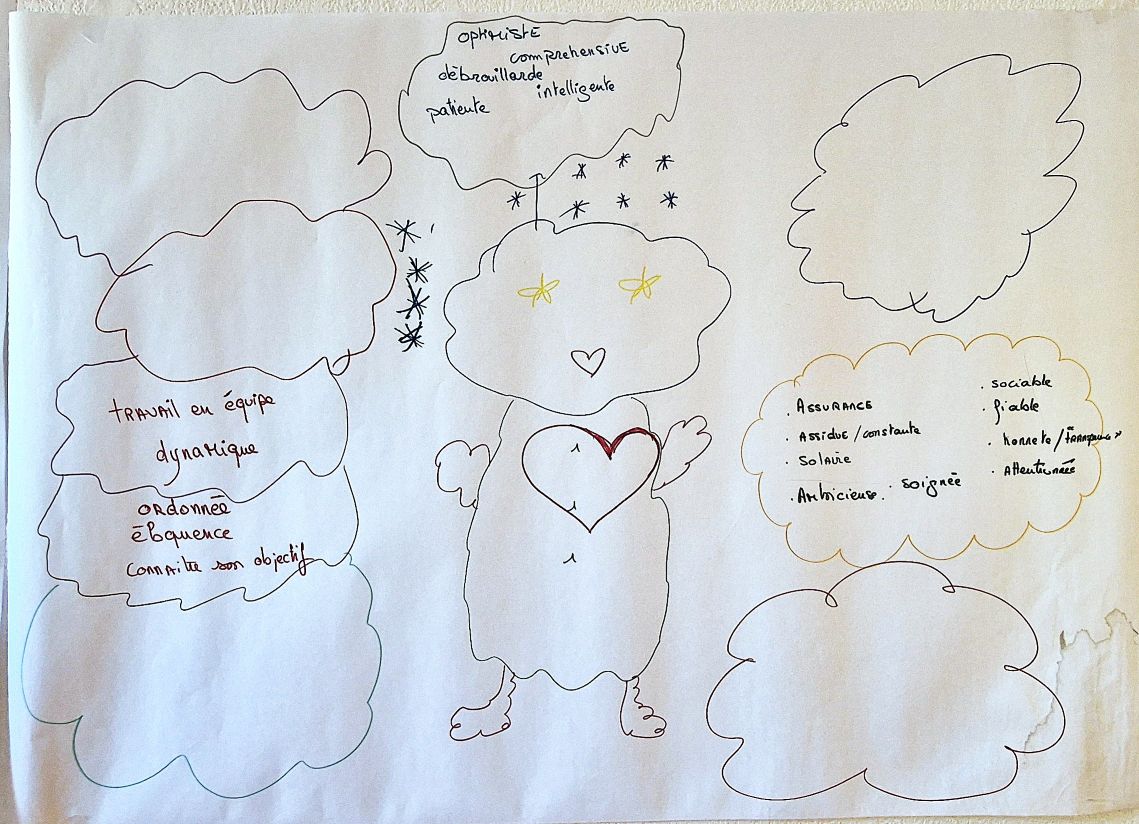 OPTIMISTE
COMPREHENSIVE
débrouillarde
intelligente
patiente
TRAVAIL en équipe
dynamique
ORDONNÉE
éloquence
CONNAITRE son objectif
. ASSURANCE
. ASSIDUE / constante
. SOLAIRE
. AMBICIEUSE
. soignée
. sociable
. fiable
. honnete /
. Attentionnée
1
1
1